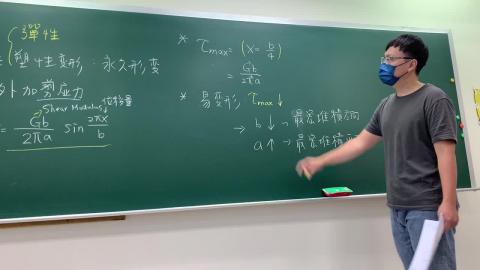 彈性
塑性变形：永久形变
外加剪应力
Shear Modulus 位移量
= Gb/2πa sin 2πx/b
* τmax = (x = b/4)
= Gb/2πa
* 易变形, τmax↓
→ b↓ → 最密堆積方向
a↑ → 最密堆積